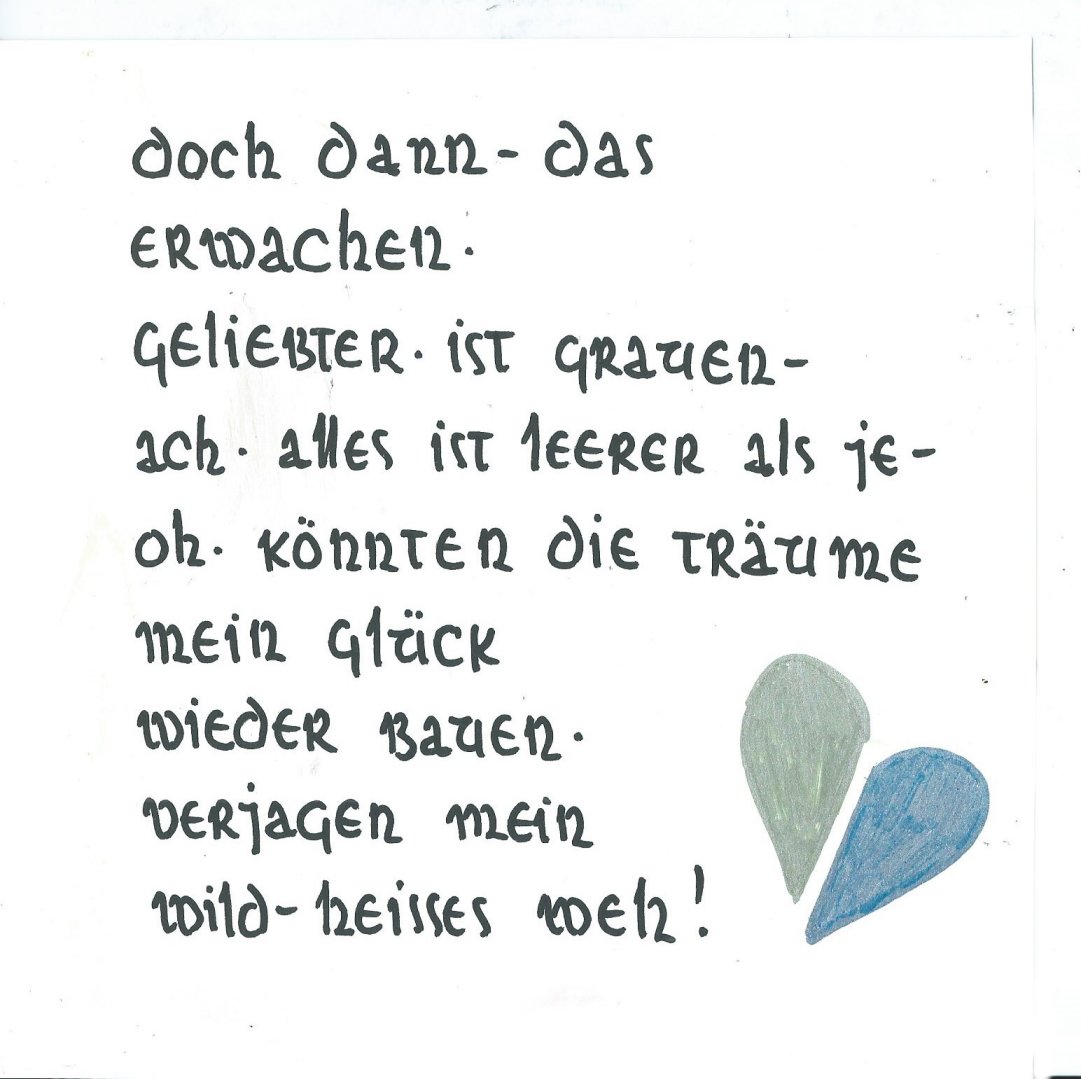 doch dann - das
erwachen.
geliebter. ist grauen -
ach. alles ist leerer als je -
oh. könnten die träume
mein glück
wieder bauen.
verjagen mein
wild - heisses weh!